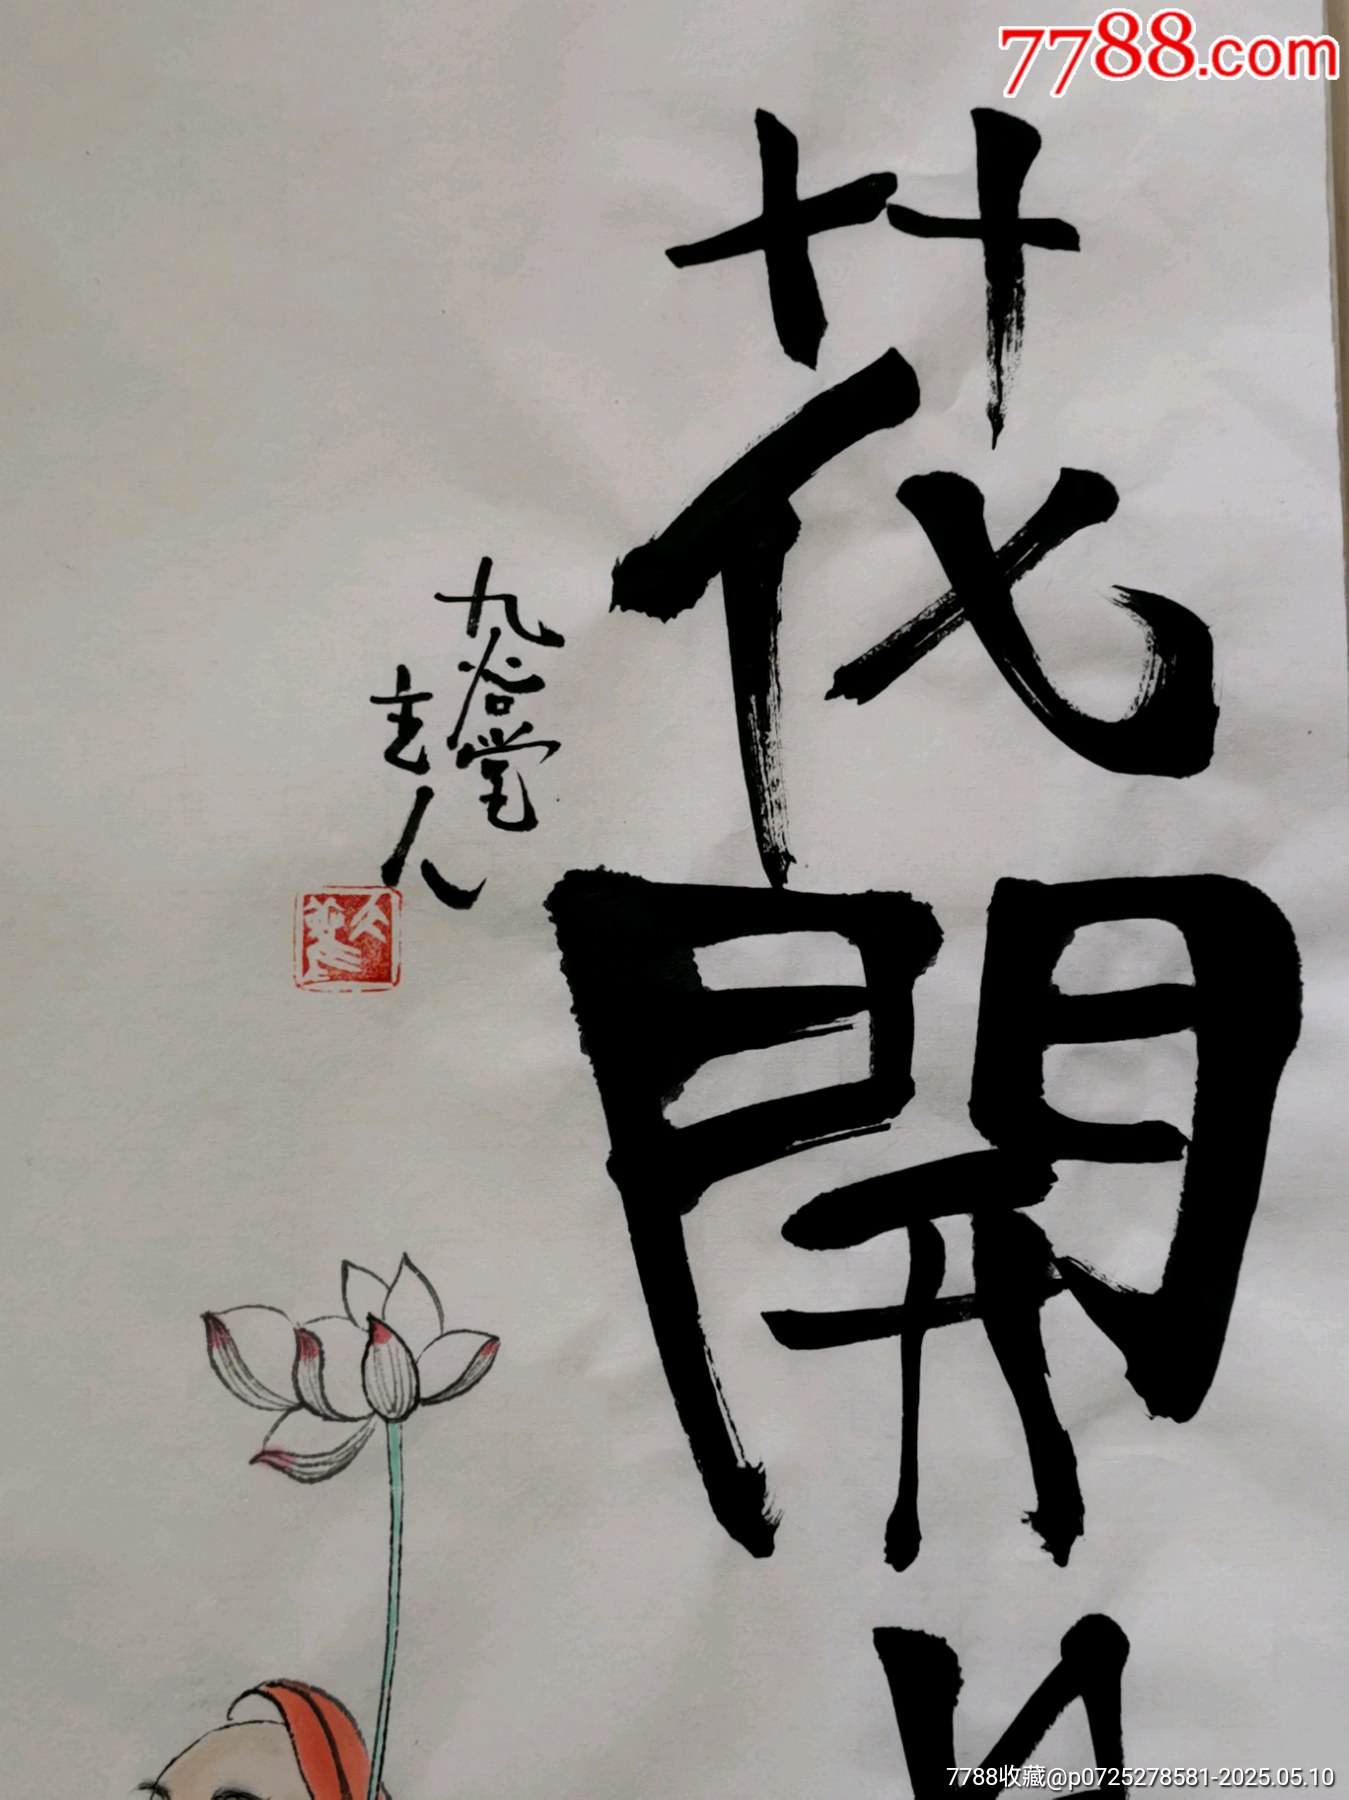 7788.com
花開
九谷堂
主人
7788收藏@p0725278581-2025.05.10